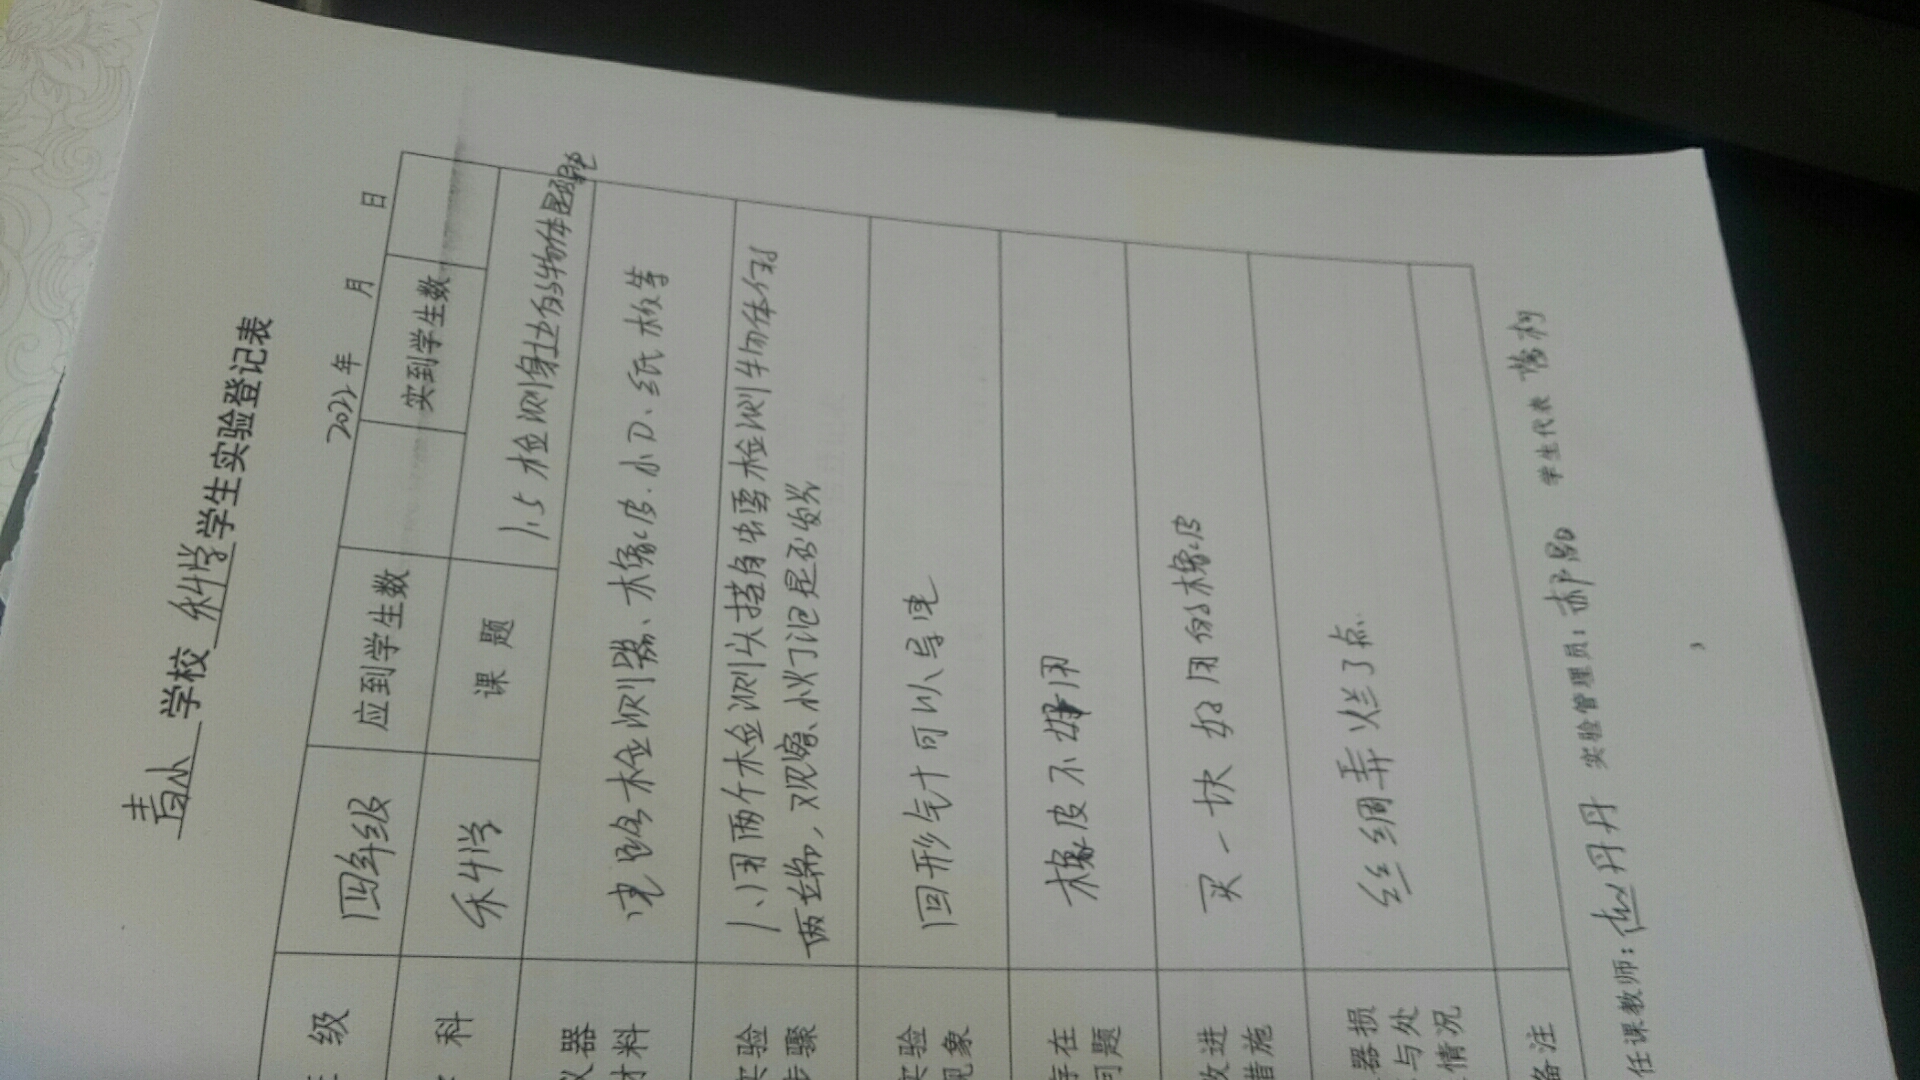 学校 科学 学生实验登记表
2022年 月 日
级 四年级 应到学生数 实到学生数
科 科学 课题 1.5 检测身边的物体
器 材料 电路检测器、橡皮、小刀、纸板等
实验 步骤 1、用两个检测头接触需检测物体
两端,观察小灯泡是否发光
实验 现象 回形针可以导电
存在 问题 橡皮不好用
改进 措施 买一块好用的橡皮
器损 与处 情况 丝绸弄烂了点.
备注
任课教师:赵丹丹 实验管理员: 学生代表